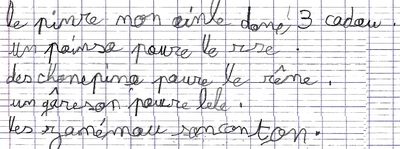 le pinre mon ainle done, 3 cadau.
un painse poure le rse.
des chonepino poure le rêne.
un gâreson poure lele.
les zanémou soncon ton.